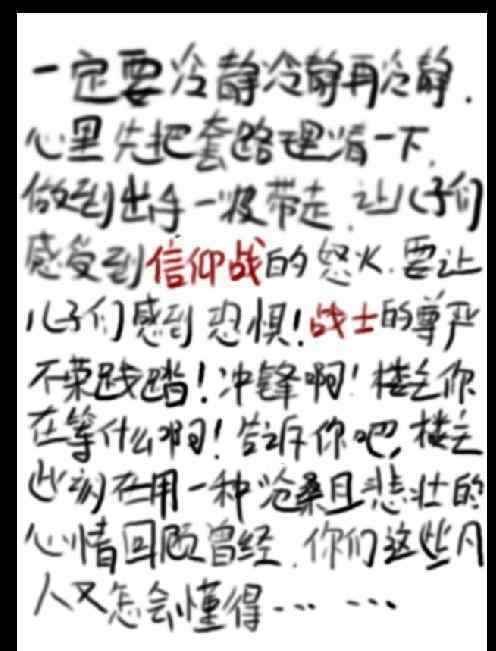 一定要冷静冷静再冷静.
心里先把套路理清一下.
做到出手一波带走.让儿子们
感受到信仰战的怒火.要让
儿子们感到恐惧!战士的尊严
不荣践踏!冲锋啊!楼主你
在等什么啊!告诉你吧,楼主
此刻在用一种沧桑且悲壮的
心情回顾曾经.你们这些凡
人又怎会懂得... ...